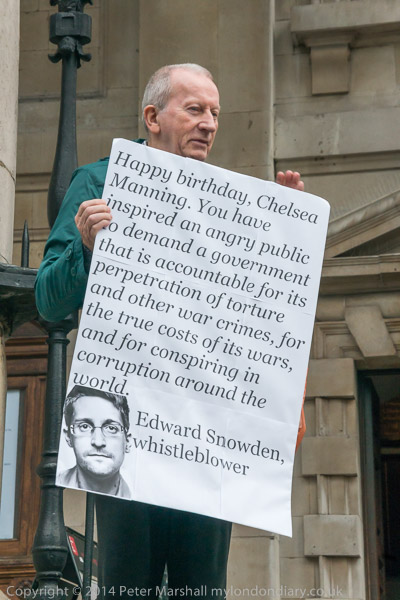 Happy birthday, Chelsea
Manning. You have
inspired an angry public
to demand a government
that is accountable for its
perpetration of torture
and other war crimes, for
the true costs of its wars,
and for conspiring in
corruption around the
world.
Edward Snowden,
whistleblower
Copyright © 2014 Peter Marshall mylondondiary.co.uk